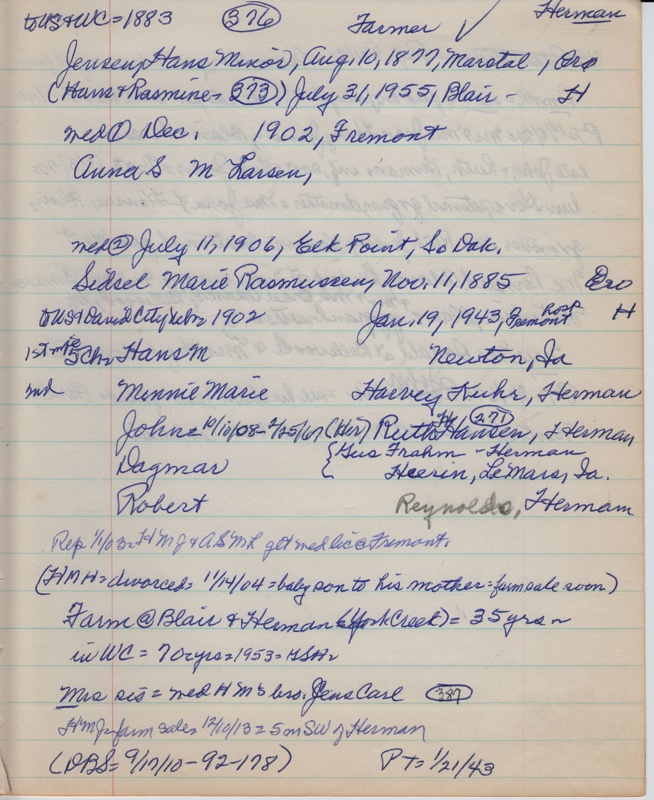 to US & WC = 1883 (376) Farmer ✓ Herman
Jensen, Hans Minor, Aug. 10, 1877, Marstal, Ero
(Hans & Rasmine - (373)) July 31, 1955, Blair - H
med ① Dec. 1902, Fremont
Anna S M Larsen,
med ② July 11, 1906, Elk Point, So Dak.
Sidsel Marie Rasmussen, Nov. 11, 1885 Ero
to US & David City Nebr 1902 Jan. 19, 1943, Fremont Hosp H
1st 5 Ch = Hans M Newton, Ia
md Minnie Marie Harvey Kuhr, Herman
John = 10/10/08 - 2/25/67 (Her) Ruth Hansen, (271) Herman
Dagmar { Gus Frahm - Herman
Heerin, LeMars, Ia.
Robert Reynolds, Herman
Rep 1/1/03 = H M J & A S M L get med lic @ Fremont.
(H M H = divorced = 11/14/04 = baby son to his mother = farm sale soon)
Farm @ Blair & Herman (York Creek) = 35 yrs ~
in WC = 70 yrs = 1953 =
Mrs sis = med H M's bro. Jens Carl (387)
H M J = farm sales 12/10/13 = 5 m SW of Herman
(DBS = 9/17/10 - 92 - 178) Pt = 1/21/43